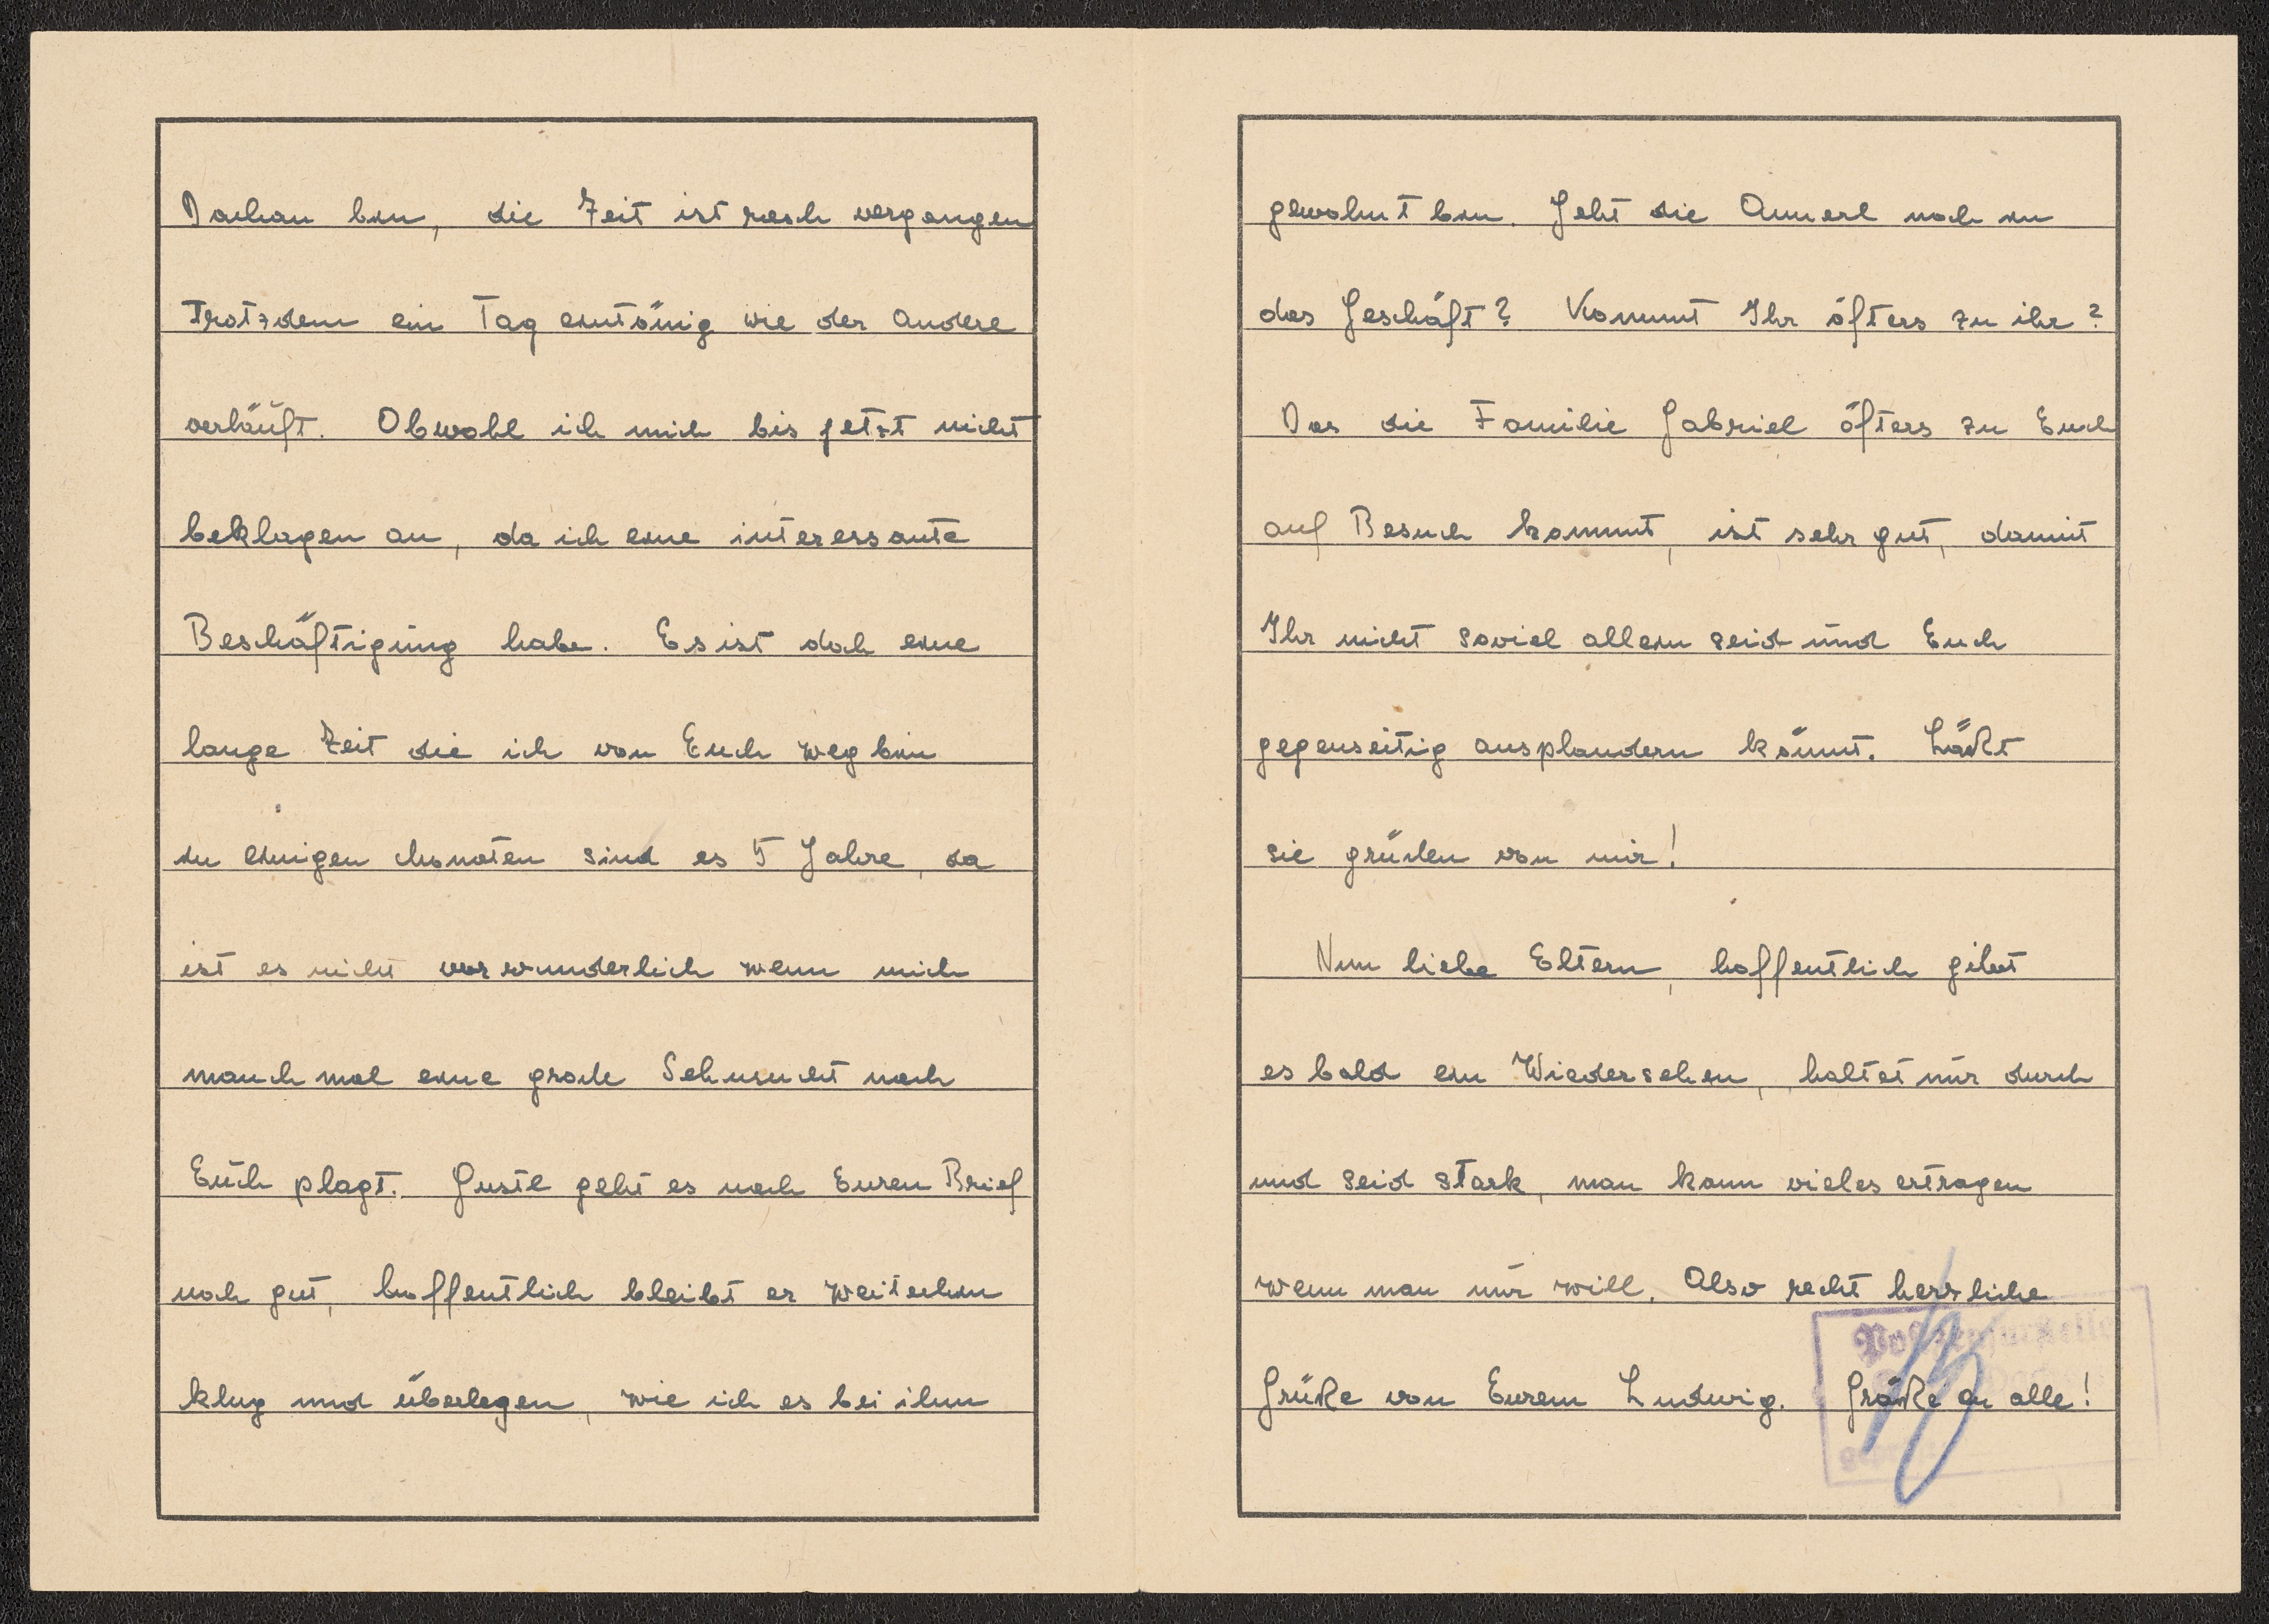 Dachau bin, die Zeit ist rasch vergangen
Trotzdem ein Tag eintönig wie der andere
verläuft. Obwohl ich mich bis jetzt nicht
beklagen an, da ich eine interessante
Beschäftigung habe. Es ist doch eine
lange Zeit die ich von Euch weg bin
in einigen Monaten sind es 5 Jahre, da
ist es nicht verwunderlich wenn mich
manchmal eine große Sehnsucht nach
Euch plagt. Gustl geht es nach Euren Brief
noch gut, hoffentlich bleibt er weiterhin
klug und überlegen, wie ich es bei ihm
gewohnt bin. Geht die Annerl noch in
das Geschäft? Kommt Ihr öfters zu ihr?
Das die Familie Gabriel öfters zu Euch
auf Besuch kommt, ist sehr gut, damit
Ihr nicht soviel allein seid und Euch
gegenseitig ausplaudern könnt. Läßt
sie grüßen von mir!
Nun liebe Eltern, hoffentlich gibt
es bald ein Wiedersehen, haltet nur durch
und seid stark, man kann vieles ertragen
wenn man nur will. Also recht herzliche
Grüße von Eurem Ludwig. Grüße an alle!
Postzensurstelle